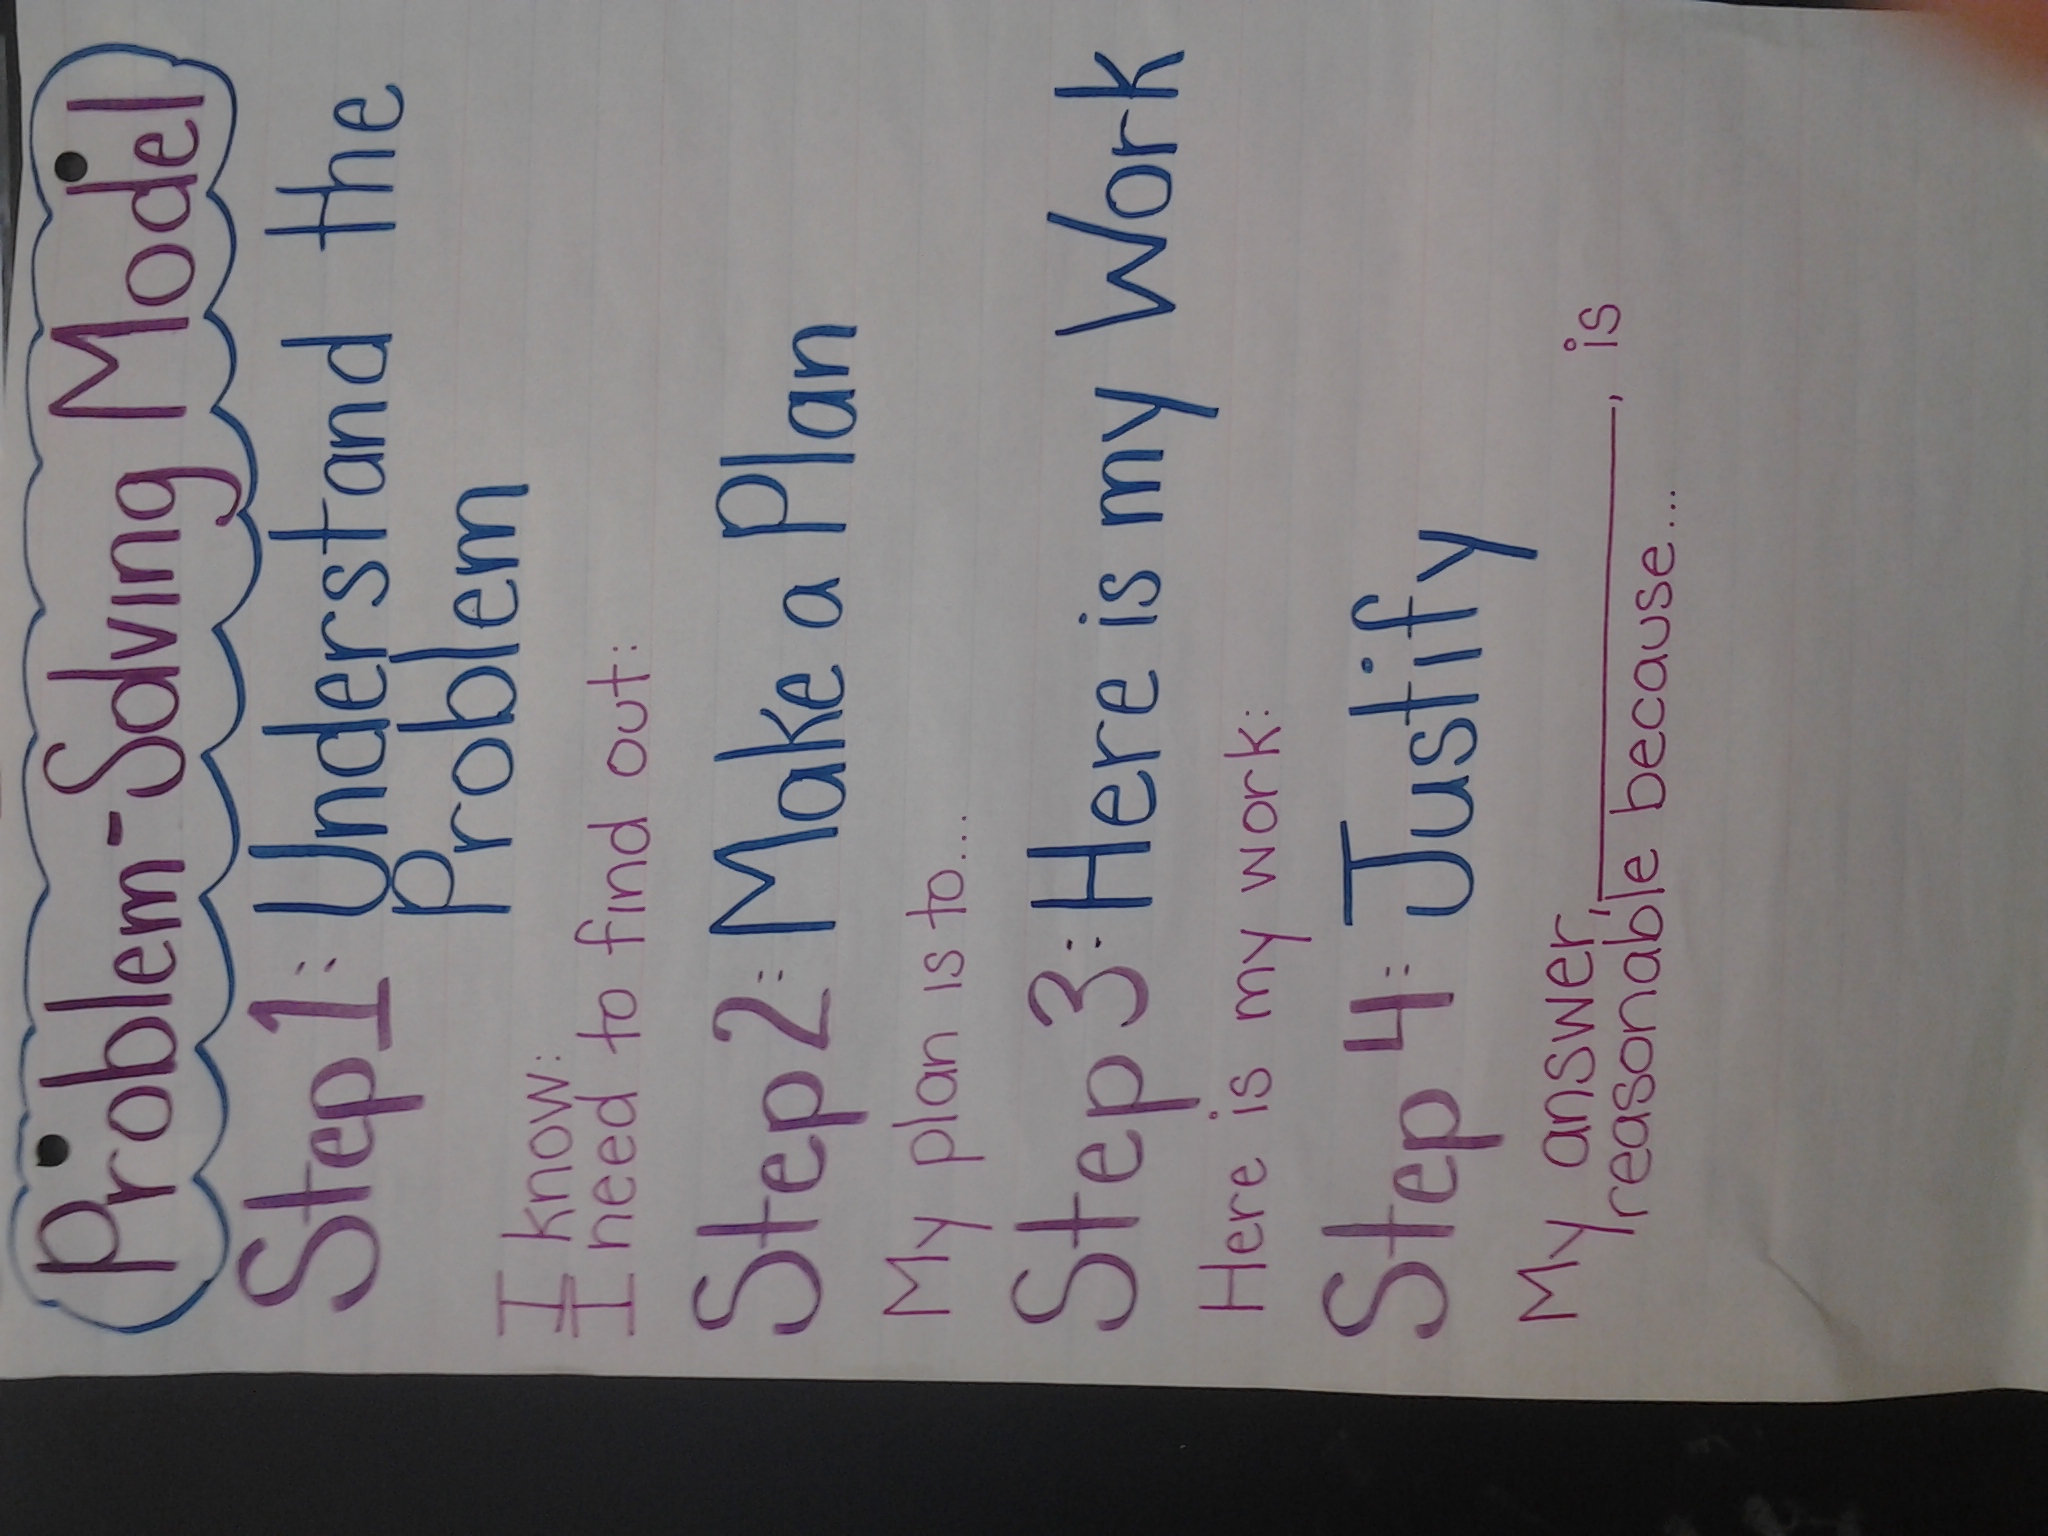 Problem-Solving Model
Step 1: Understand the
Problem
I know:
I need to find out:
Step 2: Make a Plan
My plan is to...
Step 3: Here is my Work
Here is my work:
Step 4: Justify
My answer, ________, is
reasonable because....